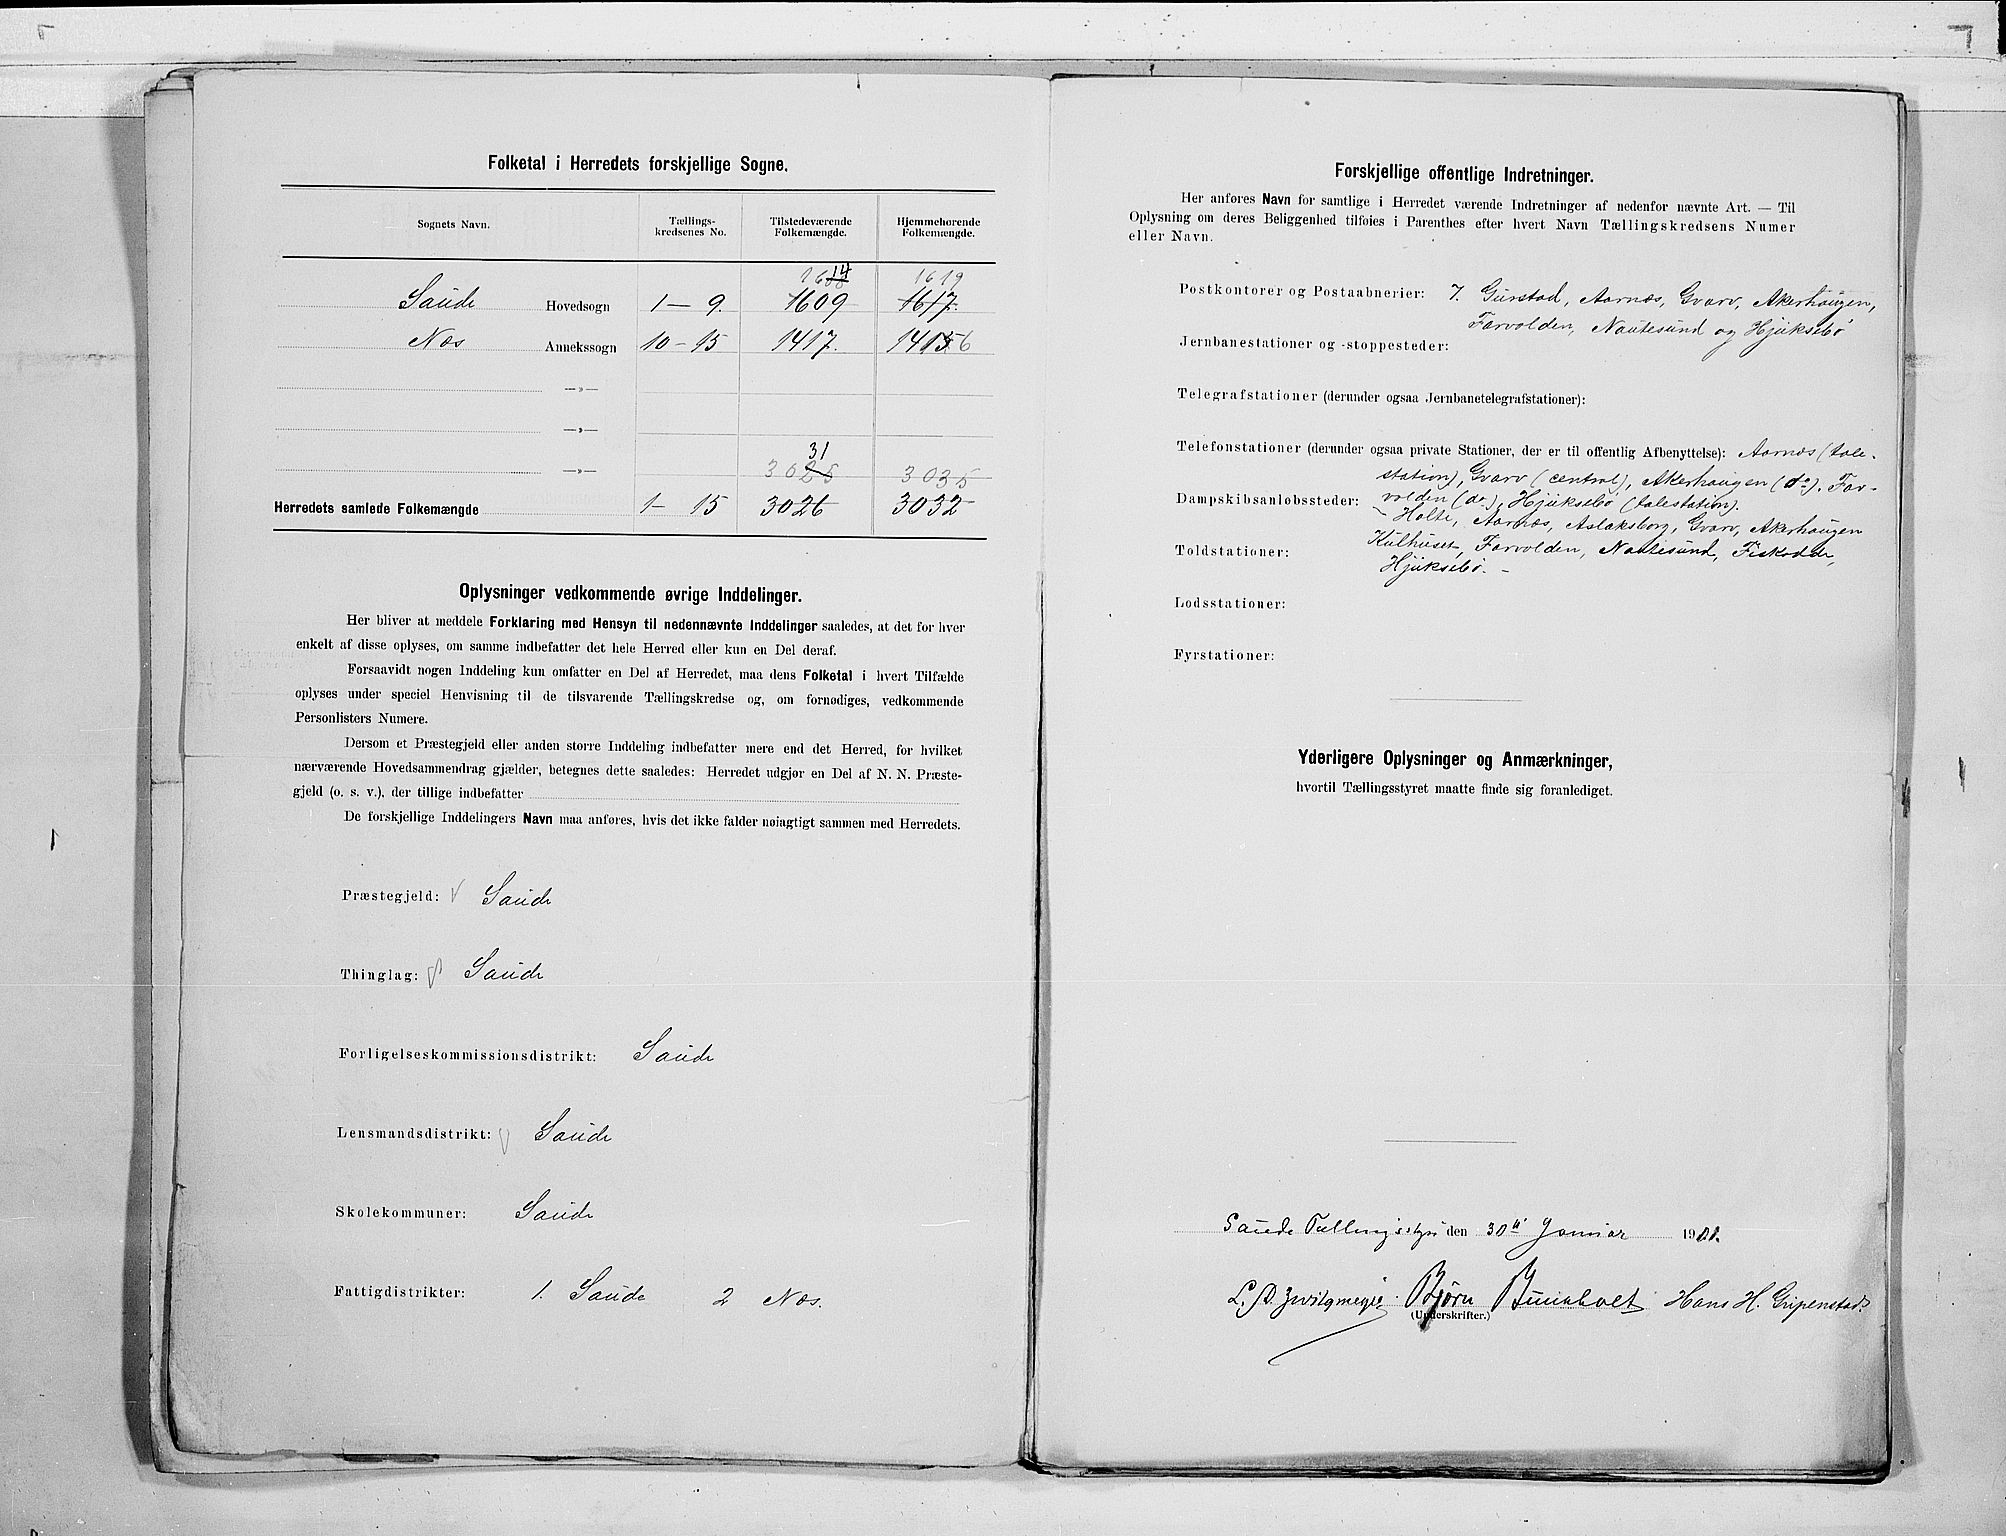 Folketal i Herredets forskjellige Sogne.
Sognets Navn. Tællings-kredsenes No. Tilstedeværende Folkemængde. Hjemmehørende Folkemængde.
14
1608 1619
Saude Hovedsogn 1 – 9. 1609 1617.
Nes Annekssogn 10 – 15 1417. 1415 6
—»—
—»—
31
—»— 3025 3035
Herredets samlede Folkemængde 1 – 15 3026 3032
Oplysninger vedkommende øvrige Inddelinger.
Her bliver at meddele Forklaring med Hensyn til nedennævnte Inddelinger saaledes, at det for hver
enkelt af disse oplyses, om samme indbefatter det hele Herred eller kun en Del deraf.
Forsaavidt nogen Inddeling kun omfatter en Del af Herredet, maa dens Folketal i hvert Tilfælde
oplyses under speciel Henvisning til de tilsvarende Tællingskredse og, om fornødiges, vedkommende
Personlisters Numere.
Dersom et Præstegjeld eller anden større Inddeling indbefatter mere end det Herred, for hvilket
nærværende Hovedsammendrag gjælder, betegnes dette saaledes: Herredet udgjør en Del af N. N. Præste-
gjeld (o. s. v.), der tillige indbefatter
De forskjellige Inddelingers Navn maa anføres, hvis det ikke falder nøiagtigt sammen med Herredets.
Præstegjeld: Saude
Thinglag: Saude
Forligelseskommissionsdistrikt: Saude
Lensmandsdistrikt: Saude
Skolekommuner: Saude
Fattigdistrikter: 1. Saude 2 Nes.
Forskjellige offentlige Indretninger.
Her anføres Navn for samtlige i Herredet værende Indretninger af nedenfor nævnte Art. — Til
Oplysning om deres Beliggenhed tilføies i Parenthes efter hvert Navn Tællingskredsens Numer
eller Navn.
Postkontorer og Postaabnerier: 7. Gurstad, Aarnes, Gvarv, Akerhaugen,
Farvolden, Nautesund og Hjuksebø
Jernbanestationer og -stoppesteder:
Telegrafstationer (derunder ogsaa Jernbanetelegrafstationer):
Telefonstationer (derunder ogsaa private Stationer, der er til offentlig Afbenyttelse): Aarnes (tale-
station), Gvarv (central), Akerhaugen (do). Far-
volden (do), Hjuksebø (talestation).
Dampskibsanløbssteder: Holte, Aarnes, Aslaksborg, Gvarv, Akerhaugen
Kulhuset, Farvolden, Nautesund, Fiskodden,
Hjuksebø. –
Toldstationer:
Lodsstationer:
Fyrstationer:
Yderligere Oplysninger og Anmærkninger,
hvortil Tællingsstyret maatte finde sig foranlediget.
Saude Tællingsstyr den 30te Januar 1901.
L. D. Zwilgmeyer. Bjørn Buukholt Hans H. Gripenstad
(Underskrifter.)